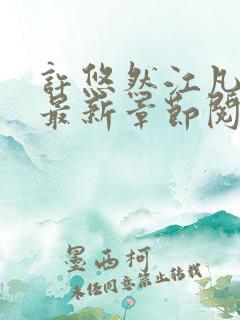 許悠然江凡
最新章節閱
墨西柯
未经同意禁止转载